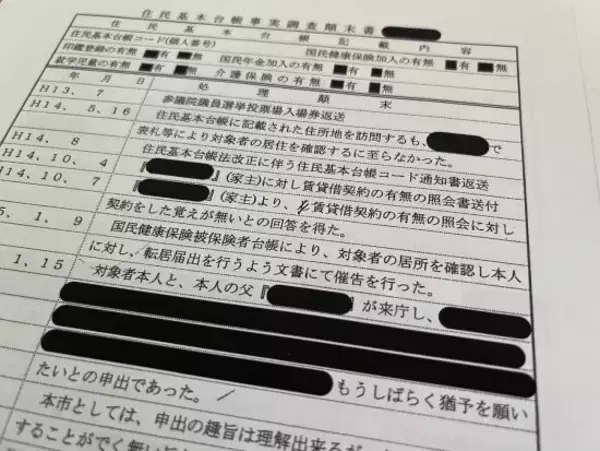 住民基本台帳事実調査顛末書
住民基本台帳記載内容
住民基本台帳コード(個人番号)
印鑑登録の有無 有 無 国民年金加入の有無 有 無 国民健康保険加入の有無 有 無
就学児童の有無 有 無 介護保険の有無 有 無
年 月 日 処理顛末
H13、 7 参議院議員選挙投票場入場券返送
H14、 5、16 住民基本台帳に記載された住所地を訪問するも、 で
表札等により対象者の居住を確認するに至らなかった。
H14、 8 住民基本台帳法改正に伴う住民基本台帳コード通知書返送
H14、10、 4 『 』(家主)に対し賃貸借契約の有無の照会書送付
H14、10、 7 『 』(家主)より、賃貸借契約の有無の照会に対し
契約をした覚えが無いとの回答を得た。
5、 1、 9 国民健康保険被保険者台帳により、対象者の居所を確認し本人
に対し、転居届出を行うよう文書にて催告を行った。
1、15 対象者本人と、本人の父『 』が来庁し、
もうしばらく猶予を願い
たいとの申出であった。
本市としては、申出の趣旨は理解出来るが
することがで